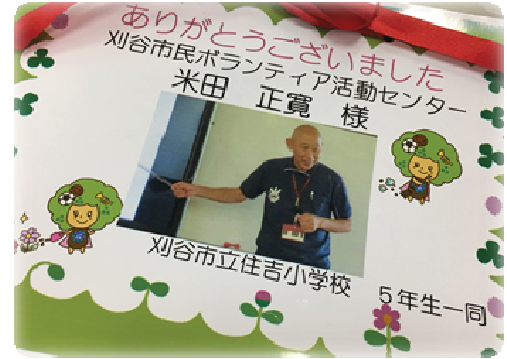 ありがとうございました
刈谷市民ボランティア活動センター
米田 正寛 様
刈谷市立住吉小学校 5年生一同